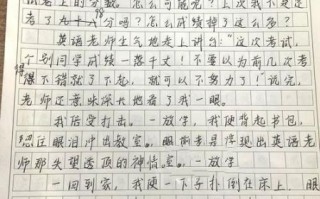 试卷上的分数，怎么可能呢？上次我不是还
考了九十八分吗？怎么成绩掉了这么多？
英语老师生气地走上讲台："这次考试，
个别同学成绩一落千丈！不要以为前几次考
得爆下错就了不起，就可以不努力了！"说完，
老师还意味深长地看了我一眼。
我后受打击。一放学，我便背起书包，
忍住眼泪冲出教室。眼前是浮现出英语老
师那失望透顶的神情。一放学
一回到家，我便一下子扑倒在床上，眼